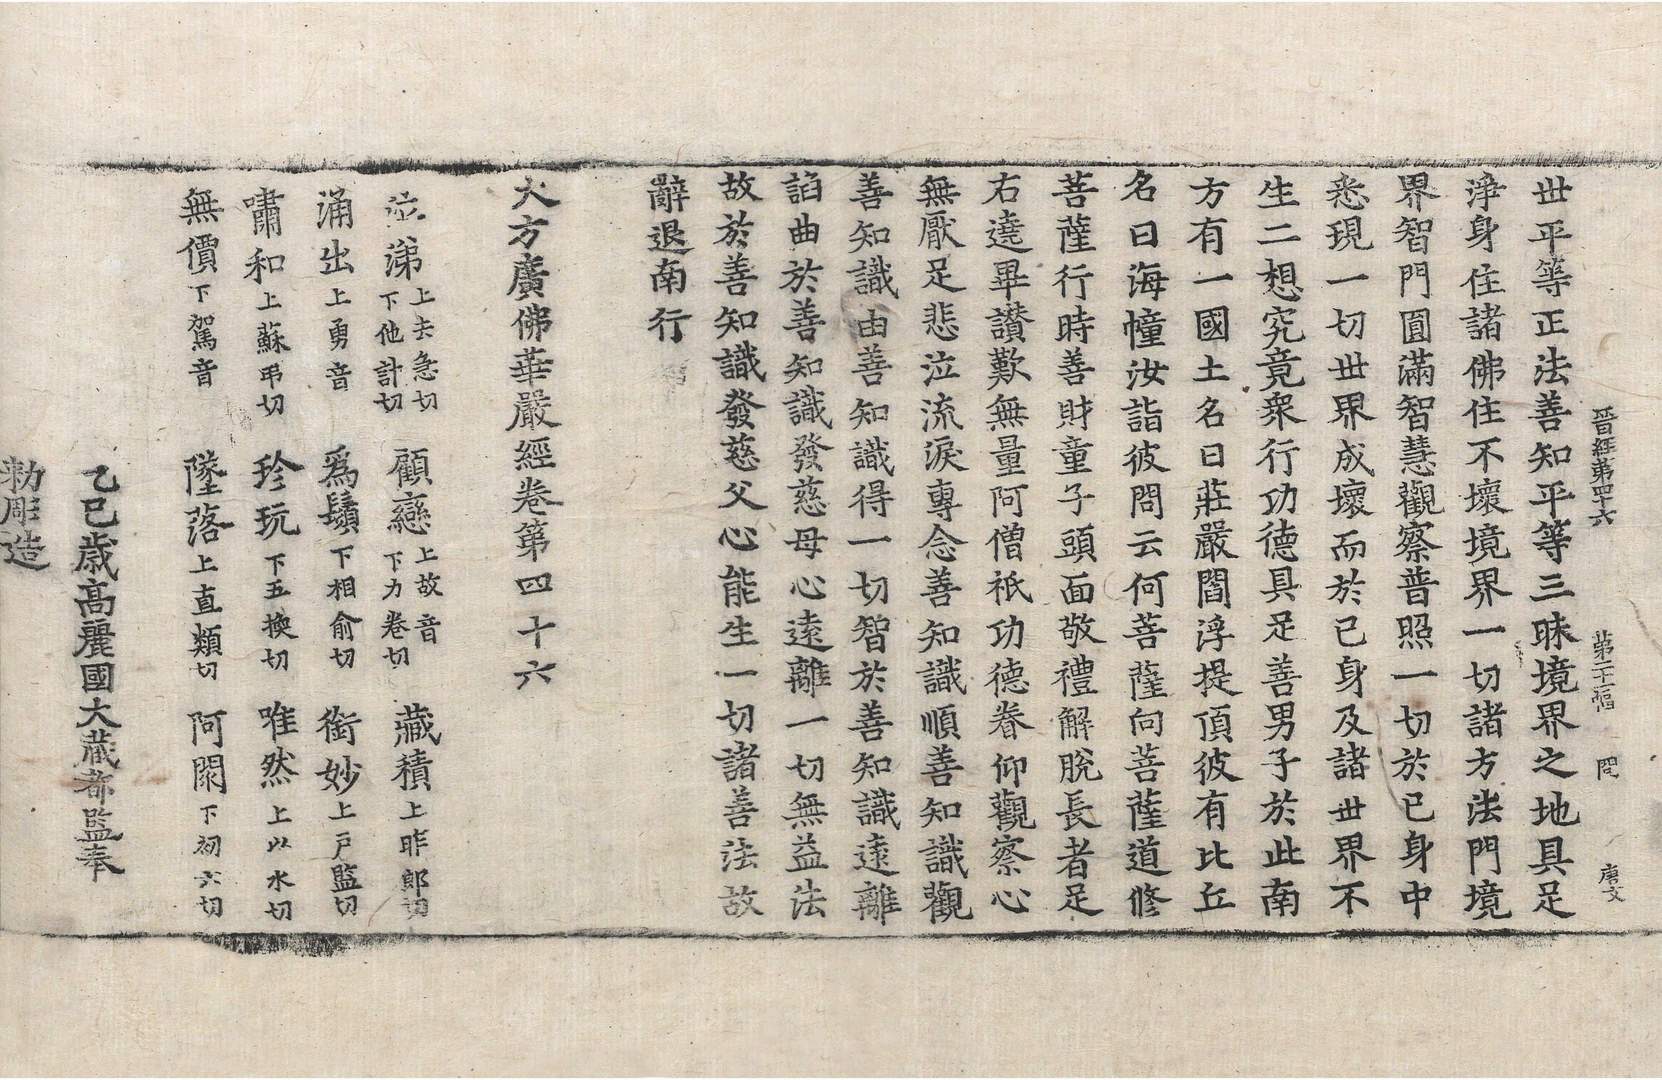 晋經第四十六 第二十二幅 問 唐文
世平等正法善知平等三昧境界之地具足
淨身住諸佛住不壞境界一切諸方法門境
界智門圓滿智慧觀察普照一切於己身中
悉現一切世界成壞而於己身及諸世界不
生二想究竟衆行功德具足善男子於此南
方有一國土名曰莊嚴閻浮提頂彼有比丘
名曰海幢汝詣彼問云何菩薩向菩薩道修
菩薩行時善財童子頭面敬禮解脫長者足
右遶畢讃歎無量阿僧祇功德眷仰觀察心
無厭足悲泣流淚專念善知識順善知識觀
善知識由善知識得一切智於善知識遠離
諂曲於善知識發慈母心遠離一切無益法
故於善知識發慈父心能生一切諸善法故
辭退南行
大方廣佛華嚴經卷第四十六
泣涕 上去急切 下他計切 顧戀 上故音 下力卷切 藏積 上昨郎切
涌出 上勇音 爲鬚 下相俞切 銜妙 上戶監切
嘯和 上蘇弔切 珍玩 下五換切 唯然 上以水切
無價 下駕音 墜落 上直類切 阿閦 下初六切
乙巳歲高麗國大藏都監奉
勅彫造